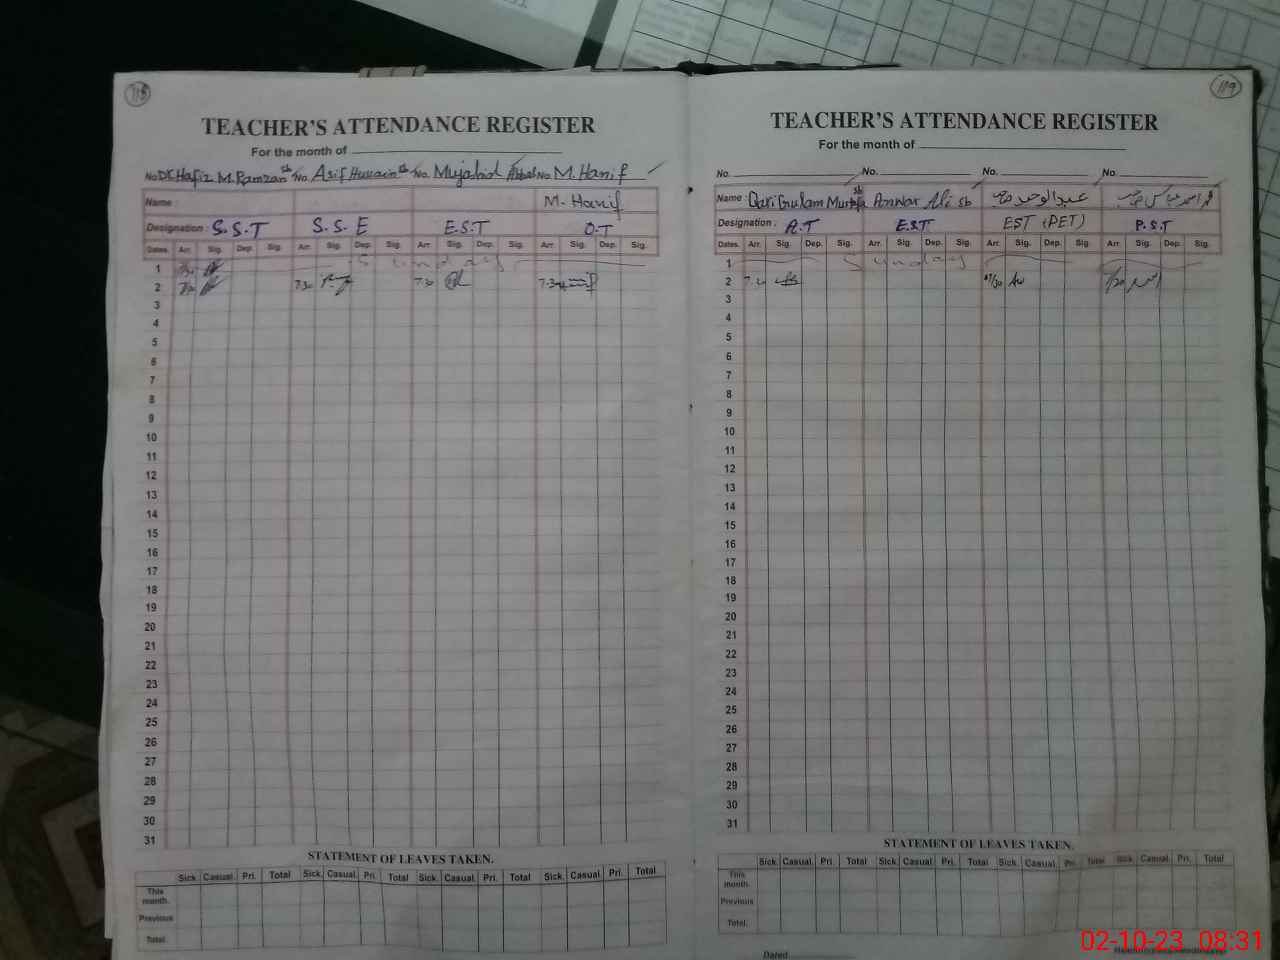 118
TEACHER'S ATTENDANCE REGISTER
For the month of
No. Hafiz M. Ramzan sb No. Asif Hussain sb No. Mujahid No. M. Hanif
Name : M. Hanif
Designation : S.S.T S.S.E E.S.T O.T
Dates. Arr. Sig. Dep. Sig. Arr. Sig. Dep. Sig. Arr. Sig. Dep. Sig. Arr. Sig. Dep. Sig.
1 Sunday
2 7.30 7.30
3
4
5
6
7
8
9
10
11
12
13
14
15
16
17
18
19
20
21
22
23
24
25
26
27
28
29
30
31
STATEMENT OF LEAVES TAKEN.
Sick. Casual. Pri. Total Sick. Casual. Pri. Total Sick. Casual. Pri. Total Sick. Casual. Pri. Total
This month.
Previous
Total.
119
TEACHER'S ATTENDANCE REGISTER
For the month of
No. No. No. No.
Name : Qari Gulam Murtafa sb Anwar Ali sb عبدالوحید
Designation : A.T E.S.T EST (PET) P.S.T
Dates. Arr. Sig. Dep. Sig. Arr. Sig. Dep. Sig. Arr. Sig. Dep. Sig. Arr. Sig. Dep. Sig.
1 Sunday
2
3
4
5
6
7
8
9
10
11
12
13
14
15
16
17
18
19
20
21
22
23
24
25
26
27
28
29
30
31
STATEMENT OF LEAVES TAKEN.
Sick. Casual. Pri. Total Sick. Casual. Pri. Total Sick. Casual. Pri. Total Sick. Casual. Pri. Total
This month.
Previous
Total.
Dated
02-10-23 08:31